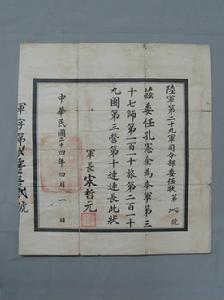 陸軍第二十九軍司令部委任狀第 號
茲委任孔憲金為本軍第三
十七師第一百十旅第二百一十
九團第三營第十連連長此狀
軍長宋哲元
中華民國二十四年四月一日
軍字第 號